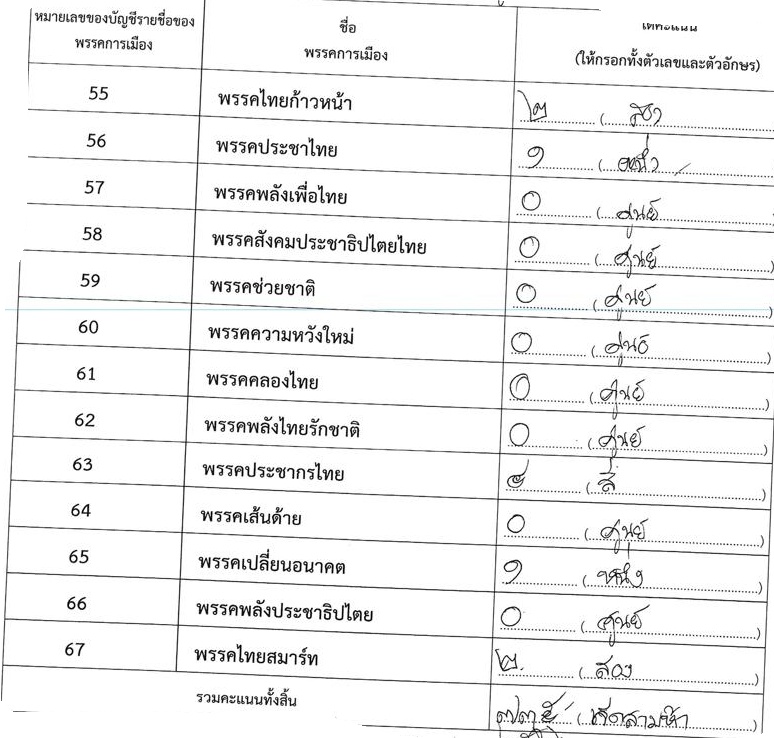 หมายเลขของบัญชีรายชื่อของ พรรคการเมือง ชื่อ พรรคการเมือง (ให้กรอกทั้งตัวเลขและตัวอักษร)
55 พรรคไทยก้าวหน้า ๒ ( สอง
56 พรรคประชาไทย ๑ ( หนึ่ง
57 พรรคพลังเพื่อไทย ๐ ( ศูนย์
58 พรรคสังคมประชาธิปไตยไทย ๐ ( ศูนย์ )
59 พรรคช่วยชาติ ๐ ( ศูนย์ )
60 พรรคความหวังใหม่ ๐ ( ศูนย์ )
61 พรรคคลองไทย ๐ ( ศูนย์ )
62 พรรคพลังไทยรักชาติ ๐ ( ศูนย์ )
63 พรรคประชากรไทย ๔ ( สี่ )
64 พรรคเส้นด้าย ๐ ( ศูนย์ )
65 พรรคเปลี่ยนอนาคต ๑ ( หนึ่ง )
66 พรรคพลังประชาธิปไตย ๐ ( ศูนย์ )
67 พรรคไทยสมาร์ท ๒ ( สอง )
รวมคะแนนทั้งสิ้น ๗๓๕ ( เจ็ดสามห้า )